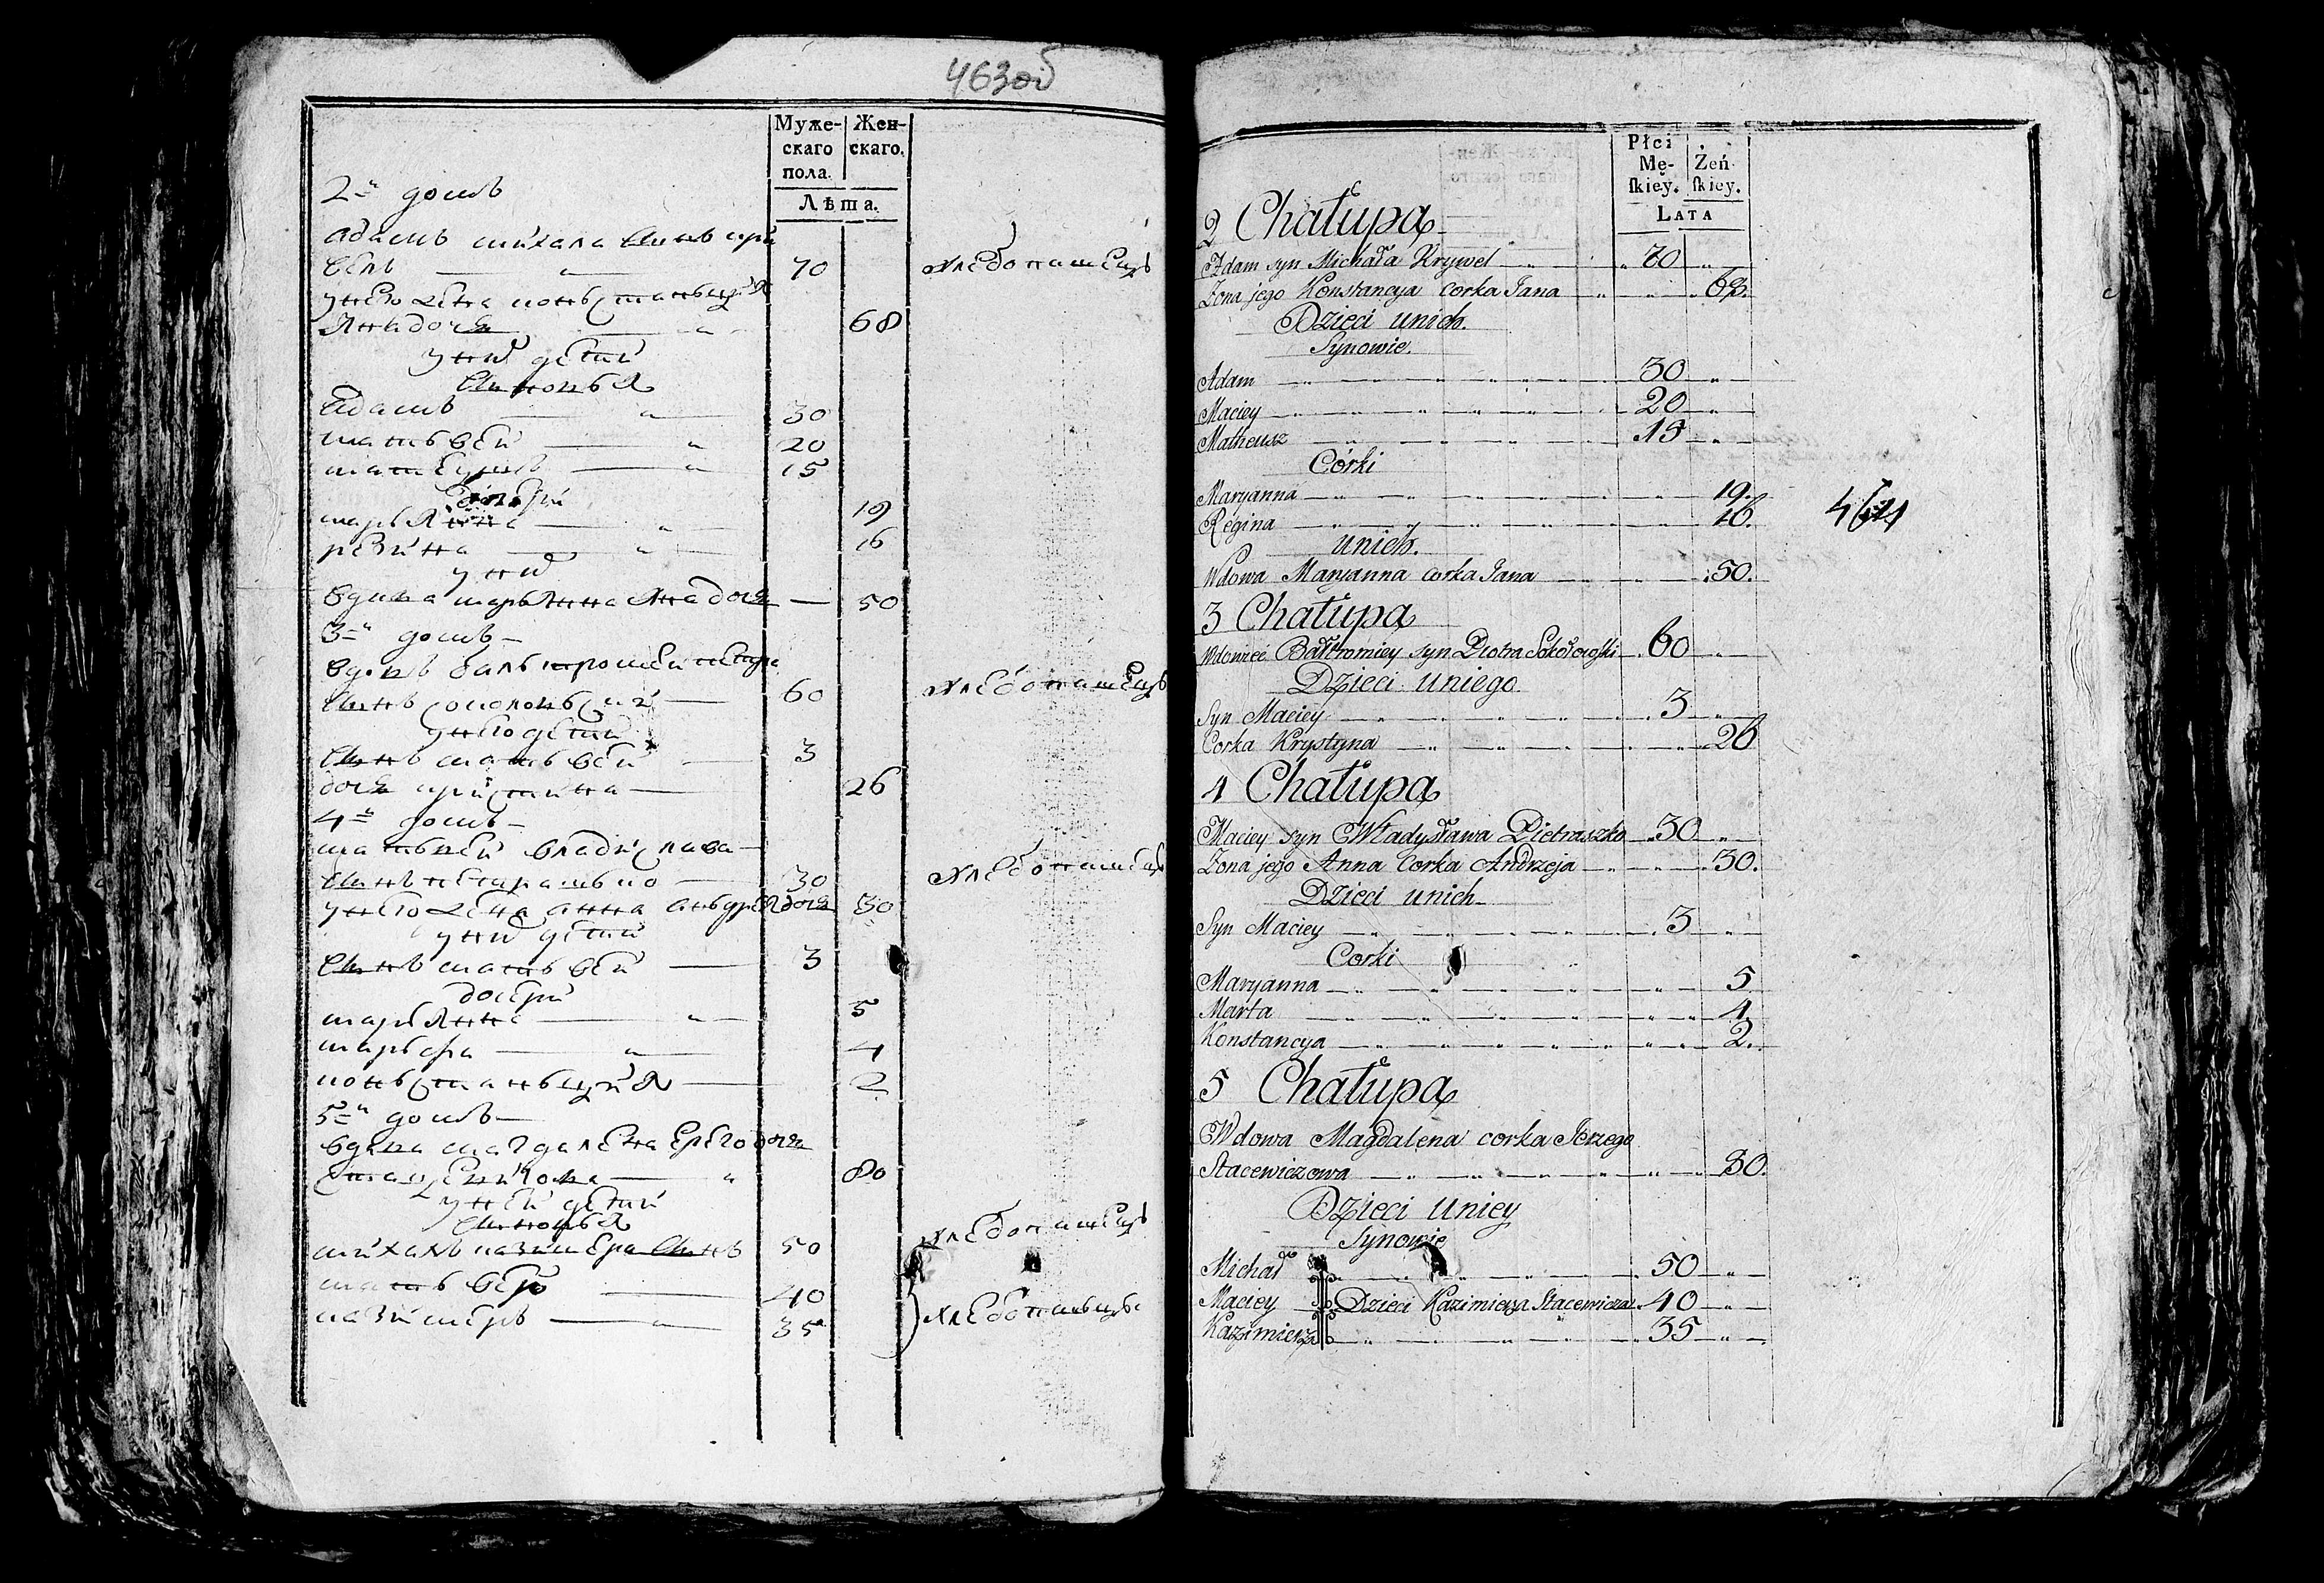 463 об
Муже-
скаго
пола.
Жен-
скаго.
Лѣта.
2й домъ
адамъ михала сынъ кри
вель 70 хлебопашецъ
унего жена констанция
Яна дочь 68
уних детий
Сыновья
адамъ 30
матвей 20
матеушъ 15
дочери
марьянна 19
регина 16
уних
вдова марьянна Яна дочь 50
3й домъ
вдовъ балтромей петра
Сынъ соколовский 60 хлебопашецъ
унего детий
Сынъ матвей 3
дочь кристина 26
4й домъ
матвей владислава
Сынъ петрашко 30 хлебопашецъ
унего жена анна андрея дочь 30
уних детий
Сынъ матвей 3
дочери
марьянна 5
марьфа 4
констанция 2
5й домъ
вдова магдалена ерего дочь
стацевичова 80
уней детий
Сыновья
михалъ казимера Сынъ 50 хлебопашецъ
матвей 40
казимеръ 35 хлебопашьцы
Płci
Mę-
skiey.
Żeń-
skiey.
LATA
2 Chałupa
Adam syn Michała Krywel 70
Żona jego Konstancya corka Jana 68.
Dzieci unich.
Synowie.
Adam 30
Maciey 20
Matheusz 15
Córki
Maryanna 19.
Regina 16.
unich.
Wdowa Maryanna corka Jana 50.
3 Chałupa
Wdowiec Bałtromiey syn Piotra Sokołowski 60
Dzieci uniego.
Syn Maciey 3
Corka Krystyna 26
4 Chałupa
Maciey syn Władysława Pietraszko 30
Żona jego Anna Corka Andrzeja 30.
Dzieci unich
Syn Maciey 3
Corki
Maryanna 5
Marta 4.
Konstancya 2.
5 Chałupa
Wdowa Magdalena corka Jerzego
Stacewiczowa 80.
Dzieci Uniey
Synowie
Michał 50
Maciey Dzieci Kazimierza Stacewicza 40
Kazimierz 35